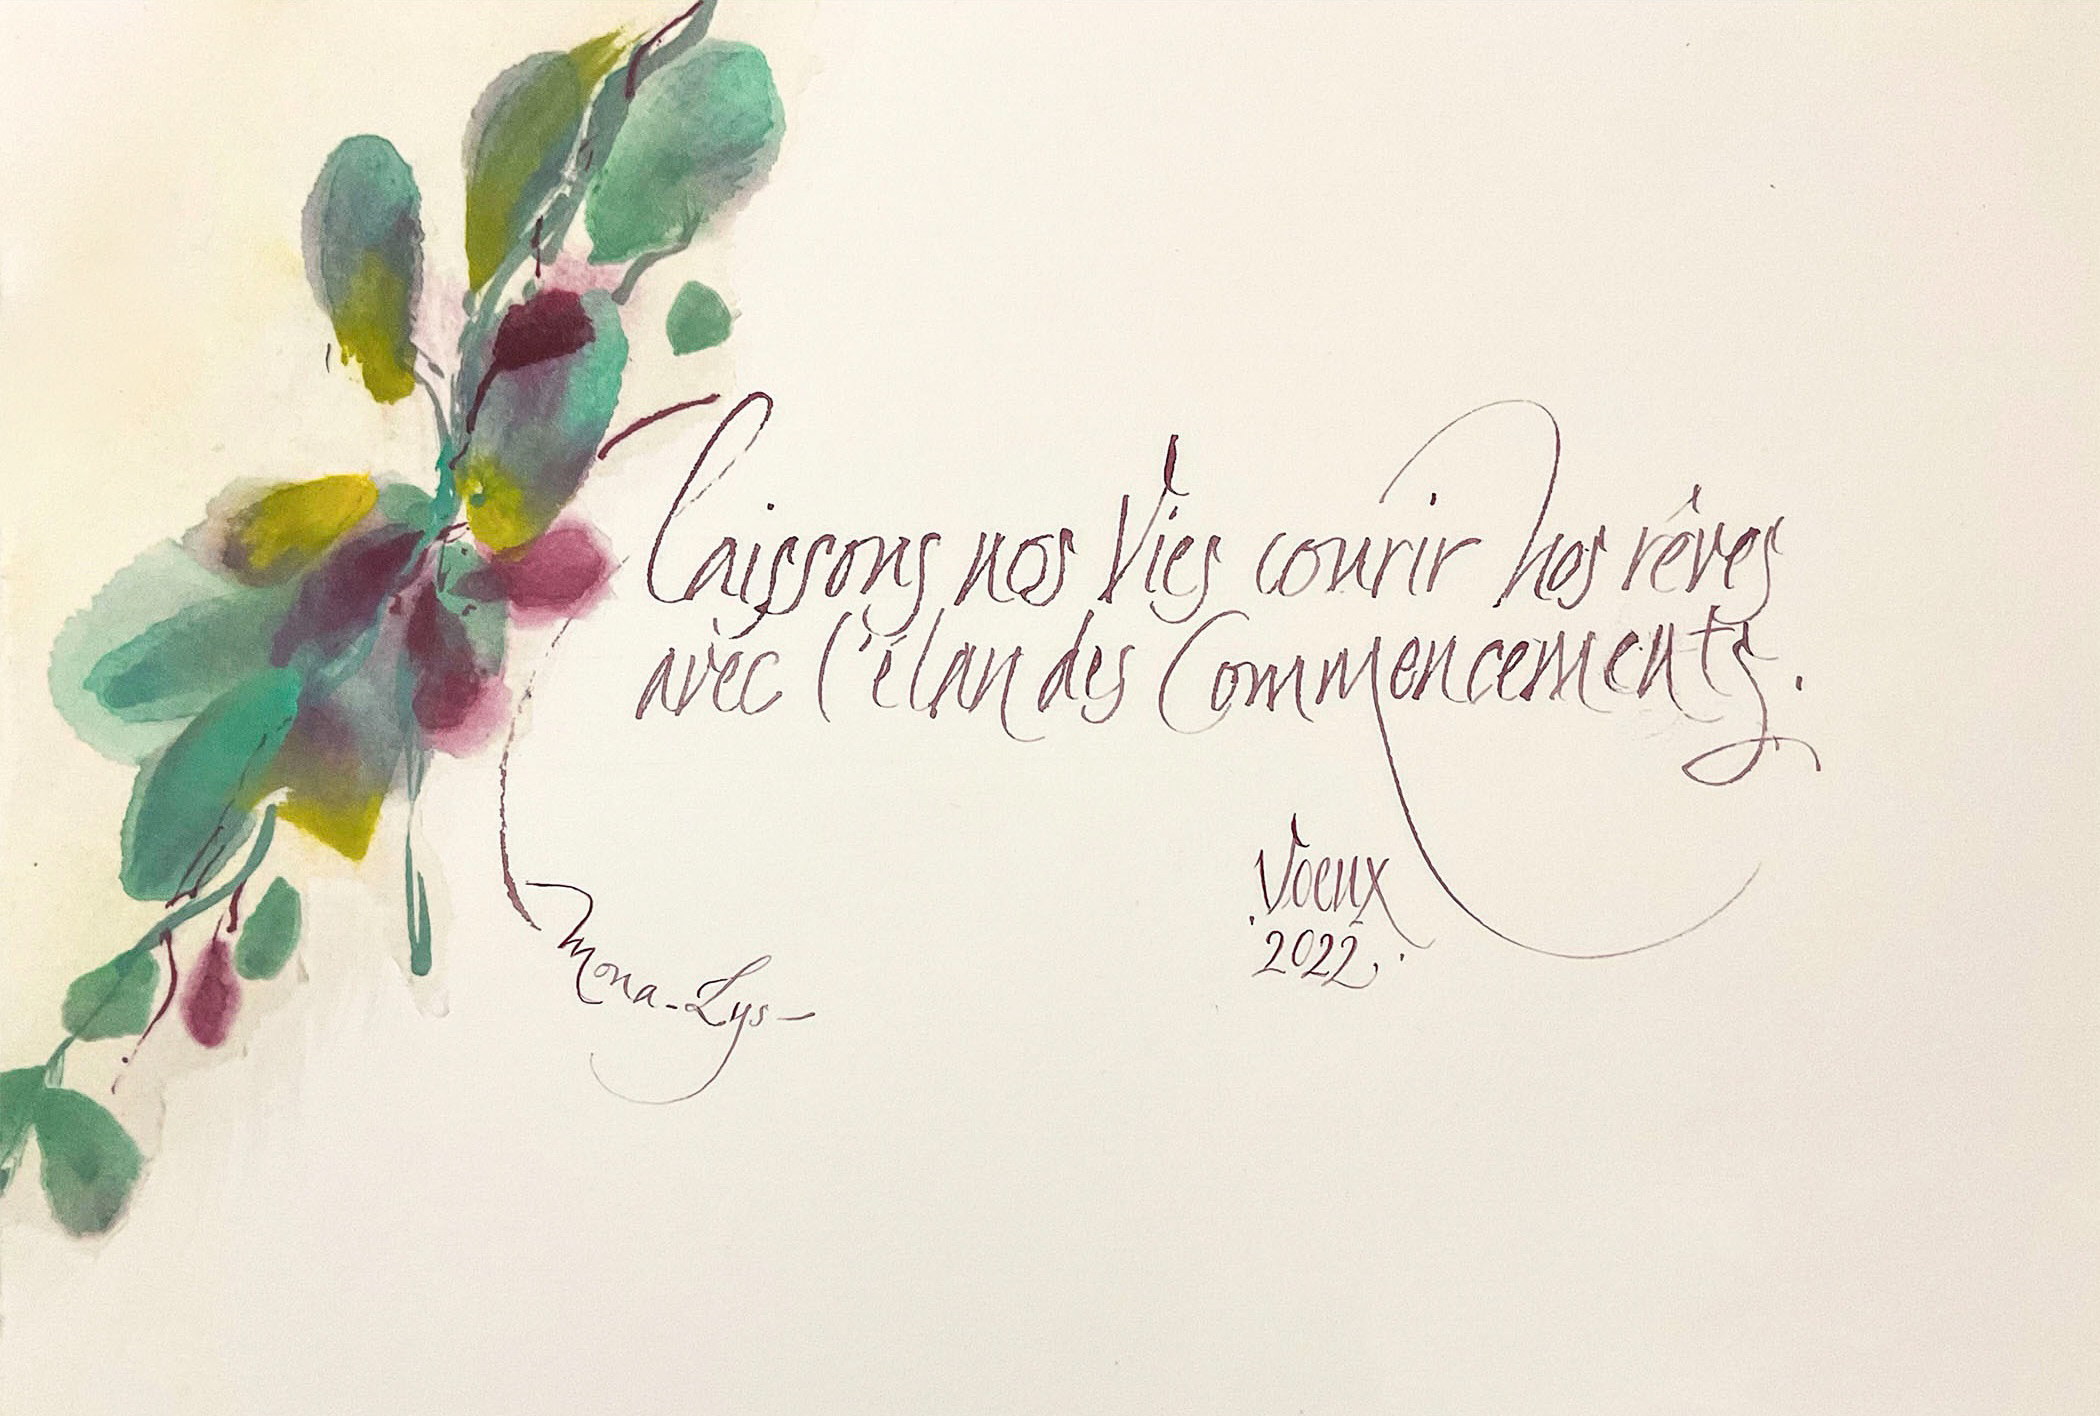 Laissons nos Vies courir nos rêves
avec l'élan des Commencements.
Voeux
2022
Mona-Lys-